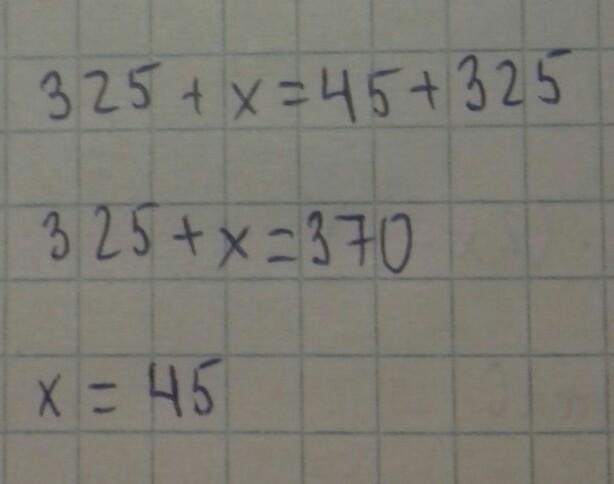 325 + x = 45 + 325
325 + x = 370
x = 45